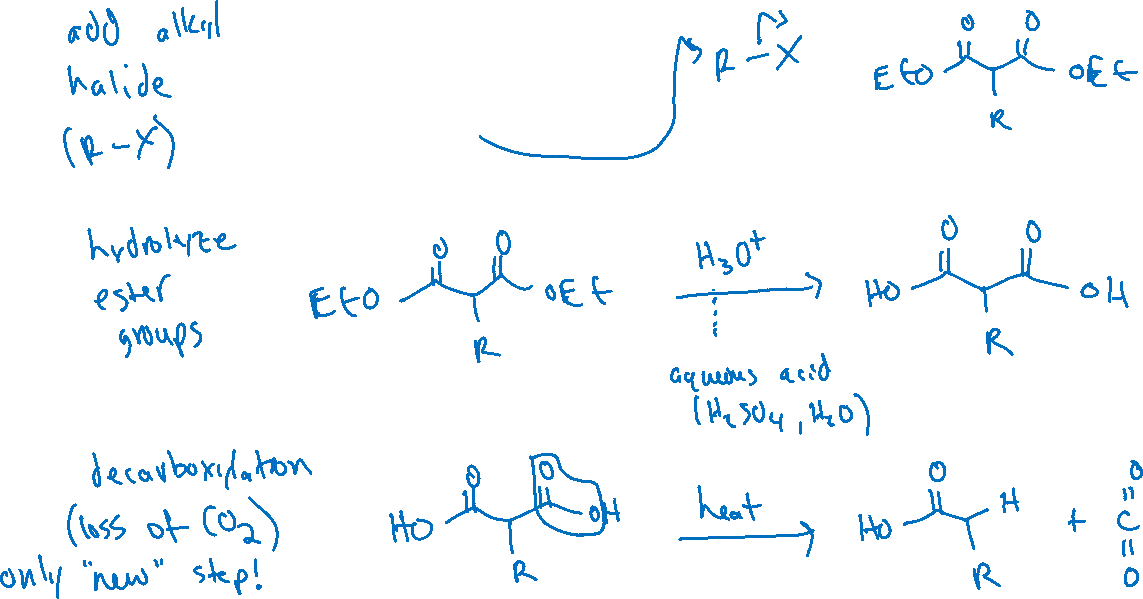 add alkyl
halide
(R-X)
R-X
O O
EtO OEt
R
hydrolyze
ester
groups
O O
EtO OEt
R
H3O+
aqueous acid
(H2SO4, H2O)
O O
HO OH
R
decarboxilation
(loss of CO2)
only "new" step!
O O
HO OH
R
heat
O
HO H
R
+
O
C
O